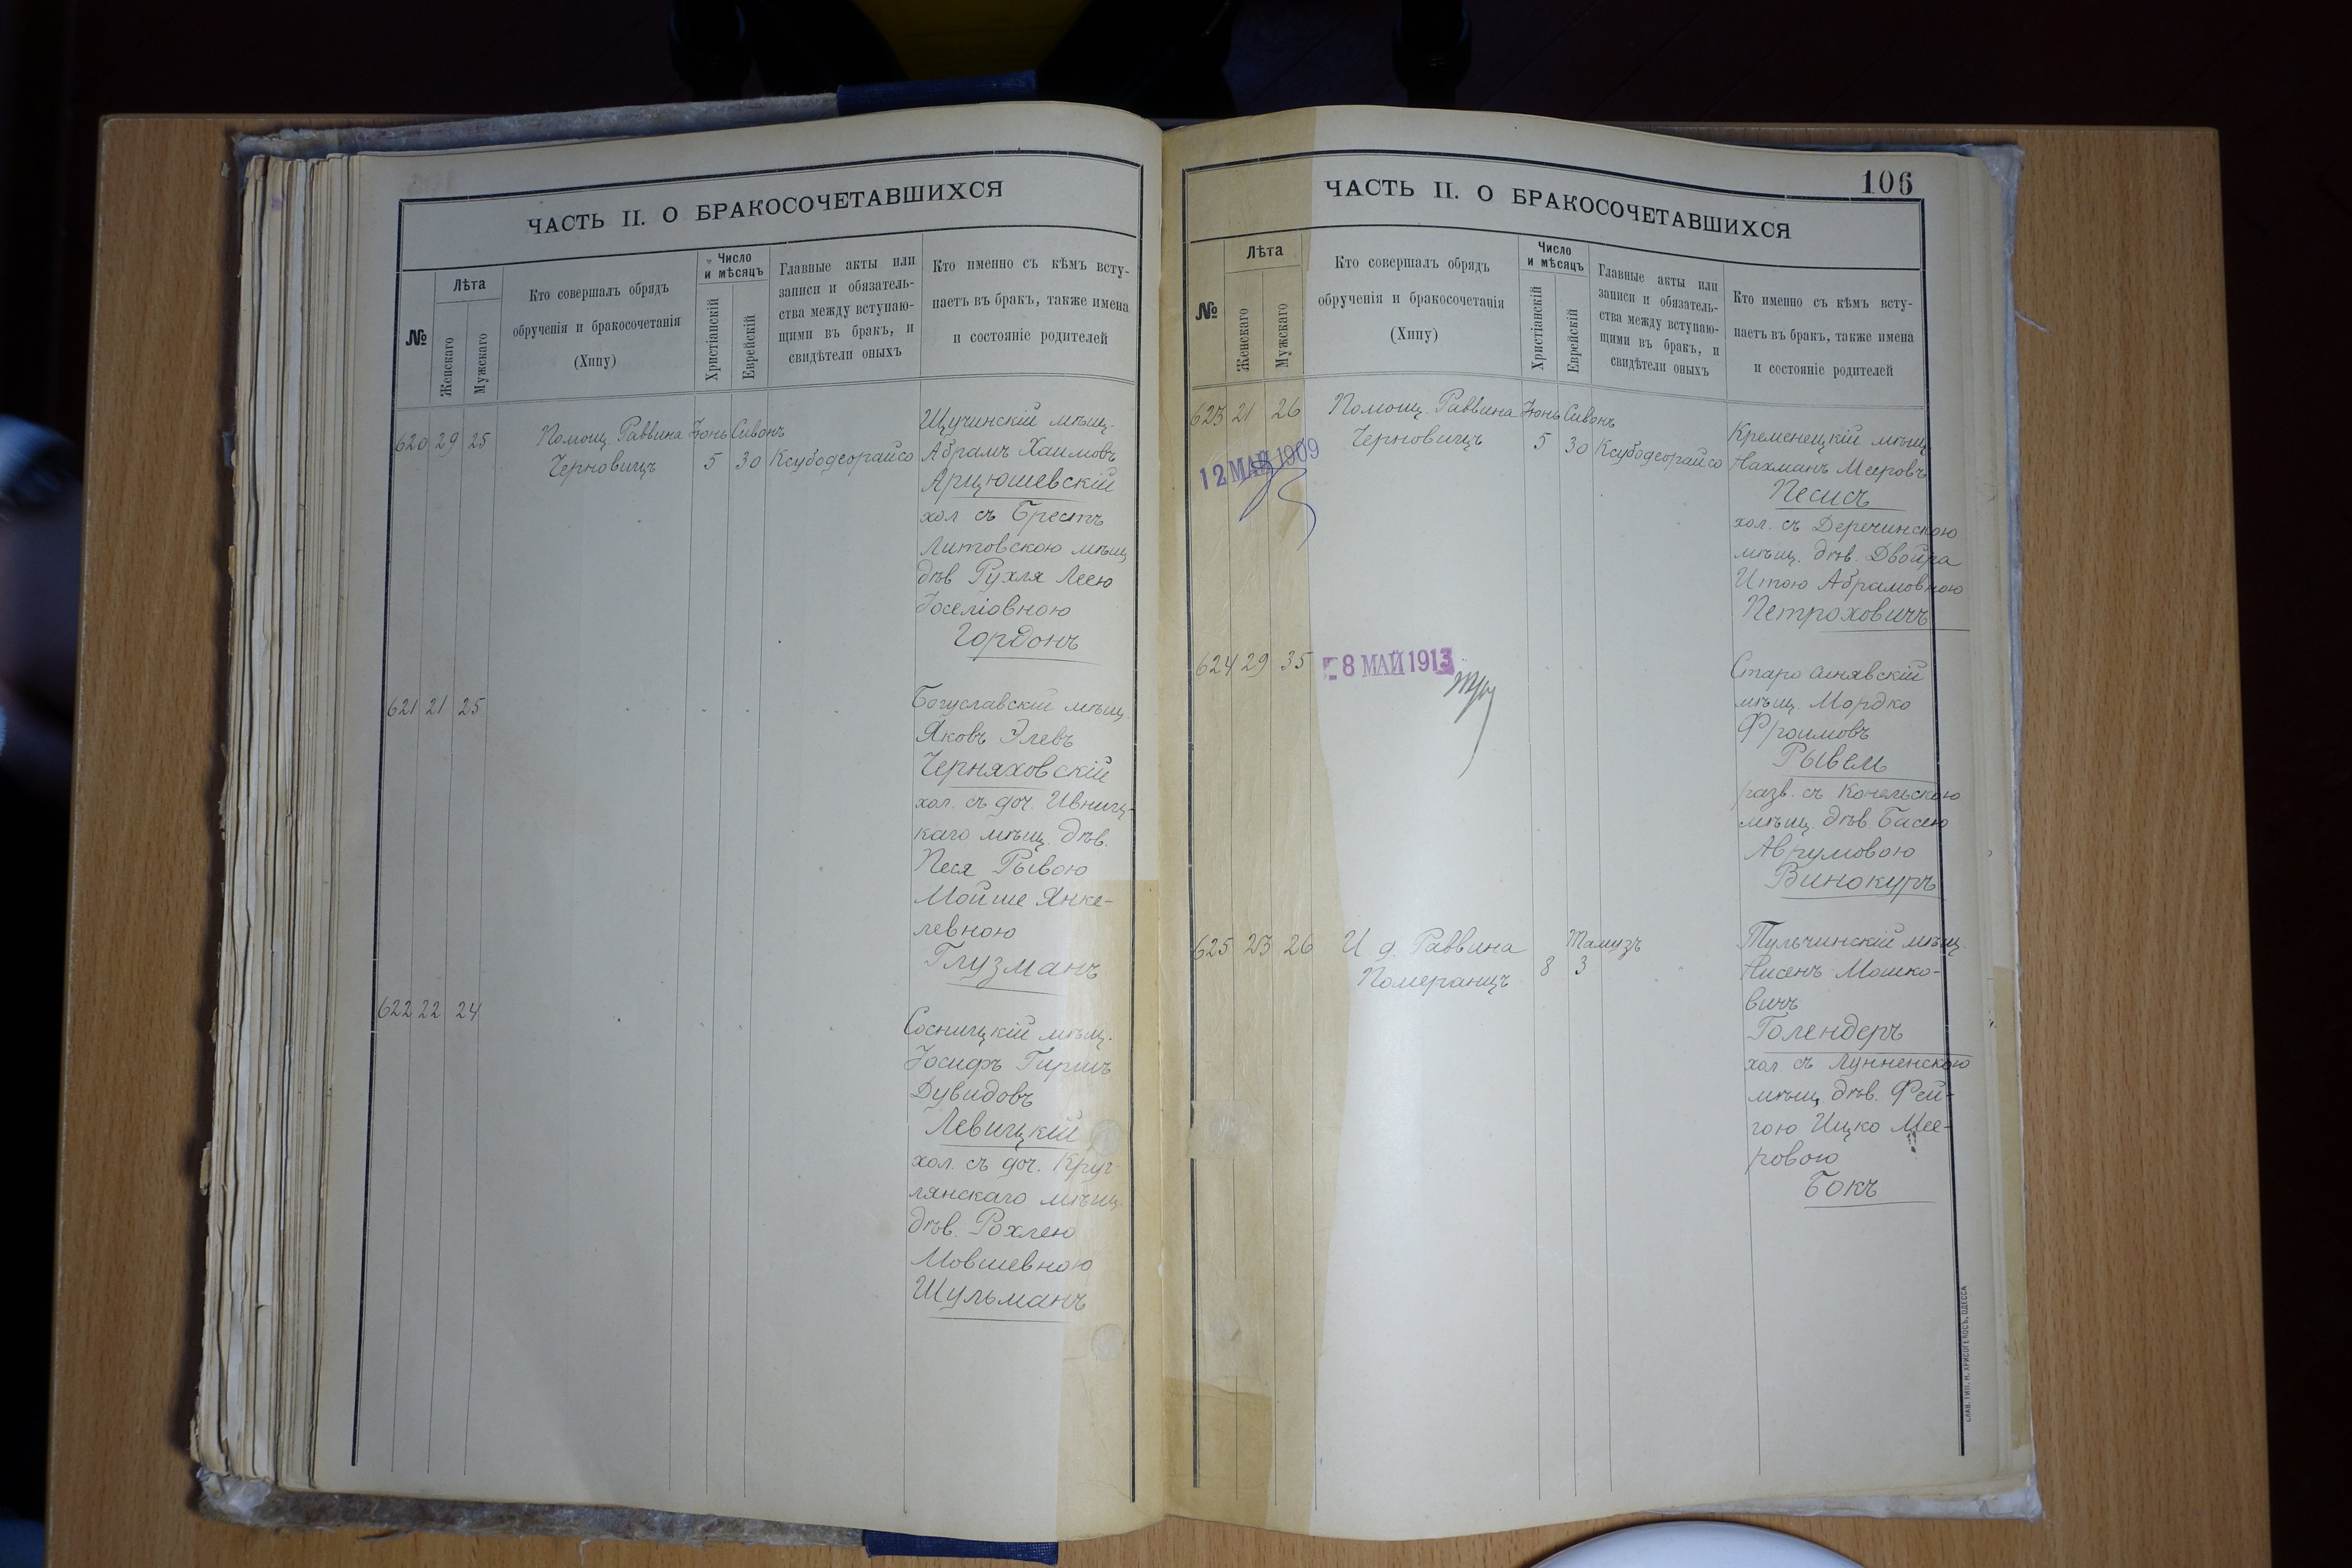 ЧАСТЬ II. О БРАКОСОЧЕТАВШИХСЯ
№
Лѣта
Женскаго
Мужскаго
Кто совершалъ обрядъ
обрученія и бракосочетанія
(Хипу)
Число
и мѣсяцъ
Христіанскій
Еврейскій
Главные акты или
записи и обязатель-
ства между вступаю-
щими въ бракъ, и
свидѣтели оныхъ
Кто именно съ кѣмъ всту-
паетъ въ бракъ, также имена
и состояніе родителей
620 29 25
Помощ. Раввина
Черновицъ
Іюнь
5
Сивонъ
30
Ксубодеорайсо
Щучинскій мѣщ.
Абрамъ Хаимовъ
Арцюшевскій
хол съ Брестъ
Литовскою мѣщ
дѣв Рухля Леею
Іоселіовною
Гордонъ
621 21 25
Богуславскій мѣщ.
Яковъ Элевъ
Черняховскій
хол. съ доч. Ивниц-
каго мѣщ. дѣв.
Песя Рывою
Мойше Янке-
левною
Глузманъ
622 22 24
Сосницкій мѣщ.
Іосифъ Гиршъ
Дувидовъ
Левицкій
хол. съ доч. Круг-
лянскаго мѣщ.
дѣв. Рохлею
Мовшевною
Шульманъ
106
ЧАСТЬ II. О БРАКОСОЧЕТАВШИХСЯ
№
Лѣта
Женскаго
Мужскаго
Кто совершалъ обрядъ
обрученія и бракосочетанія
(Хипу)
Число
и мѣсяцъ
Христіанскій
Еврейскій
Главные акты или
записи и обязатель-
ства между вступаю-
щими въ бракъ, и
свидѣтели оныхъ
Кто именно съ кѣмъ всту-
паетъ въ бракъ, также имена
и состояніе родителей
623 21 26
12 МАЙ 1909
Помощ. Раввина
Черновицъ
Іюнь
5
Сивонъ
30
Ксубодеорайсо
Кременецкій мѣщ
Нахманъ Мееровъ
Песисъ
хол. съ Деречинскою
мѣщ. дѣв. Двойра
Итою Абрамовною
Петроховичъ
624 29 35
8 МАЙ 1913
Старо синявскій
мѣщ. Мордко
Фроимовъ
Рывель
разв. съ Кочельскою
мѣщ. дѣв. Басею
Аврумовою
Винокуръ
625 23 26
И. д. Раввина
Померанцъ
8
Тамузъ
3
Тульчинскій мѣщ.
Нисенъ Мошко-
вичъ
Голендеръ
хол. съ Лунненскою
мѣщ, дѣв. Фей-
гою Ицко Мее-
ровою
Бокъ
СЛАВ. ТИП. Н. ХРИСОГЕЛОСЪ, ОДЕССА